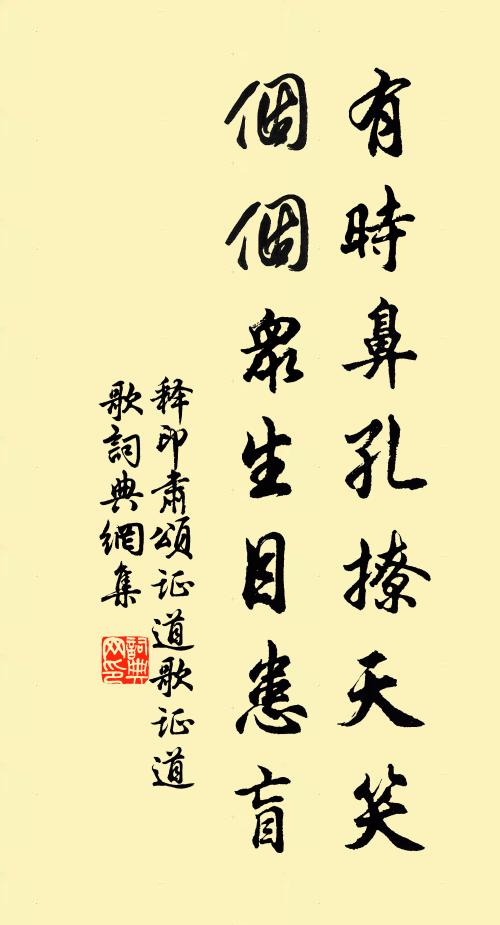 有時鼻孔撩天笑
個個眾生目患盲
释印肅頌证道歌证道
歌詞典網集
詞典
网印